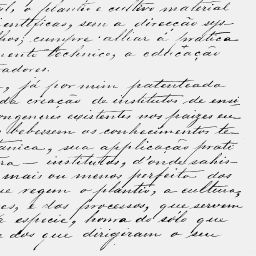 o plantio e cultivo material
scientificos, sem a direcção sys-
cumpre alliar á pratica
mento technico, a educação
tadores.
, já por mim patenteada
da creação de institutos de ensi
congeneres existentes nos paizes eu
bebessem os conhecimentos te
tanica, sua applicação prati
ra — institutos, d'onde sahis-
mais ou menos perfeito das
que regem o plantio, a cultura,
es, e dos processos, que servem
especie, homa do sólo que
dos que dirigiram o seu